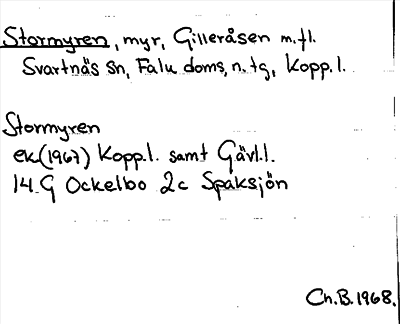 Stormyren, myr, Gilleråsen m.fl.
Svartnäs sn, Falu doms, n. tg, Kopp. l.
Stormyren
ek(1967) Kopp.l. samt Gävl.l.
14.G Ockelbo 2c Spaksjön
Ch.B.1968.